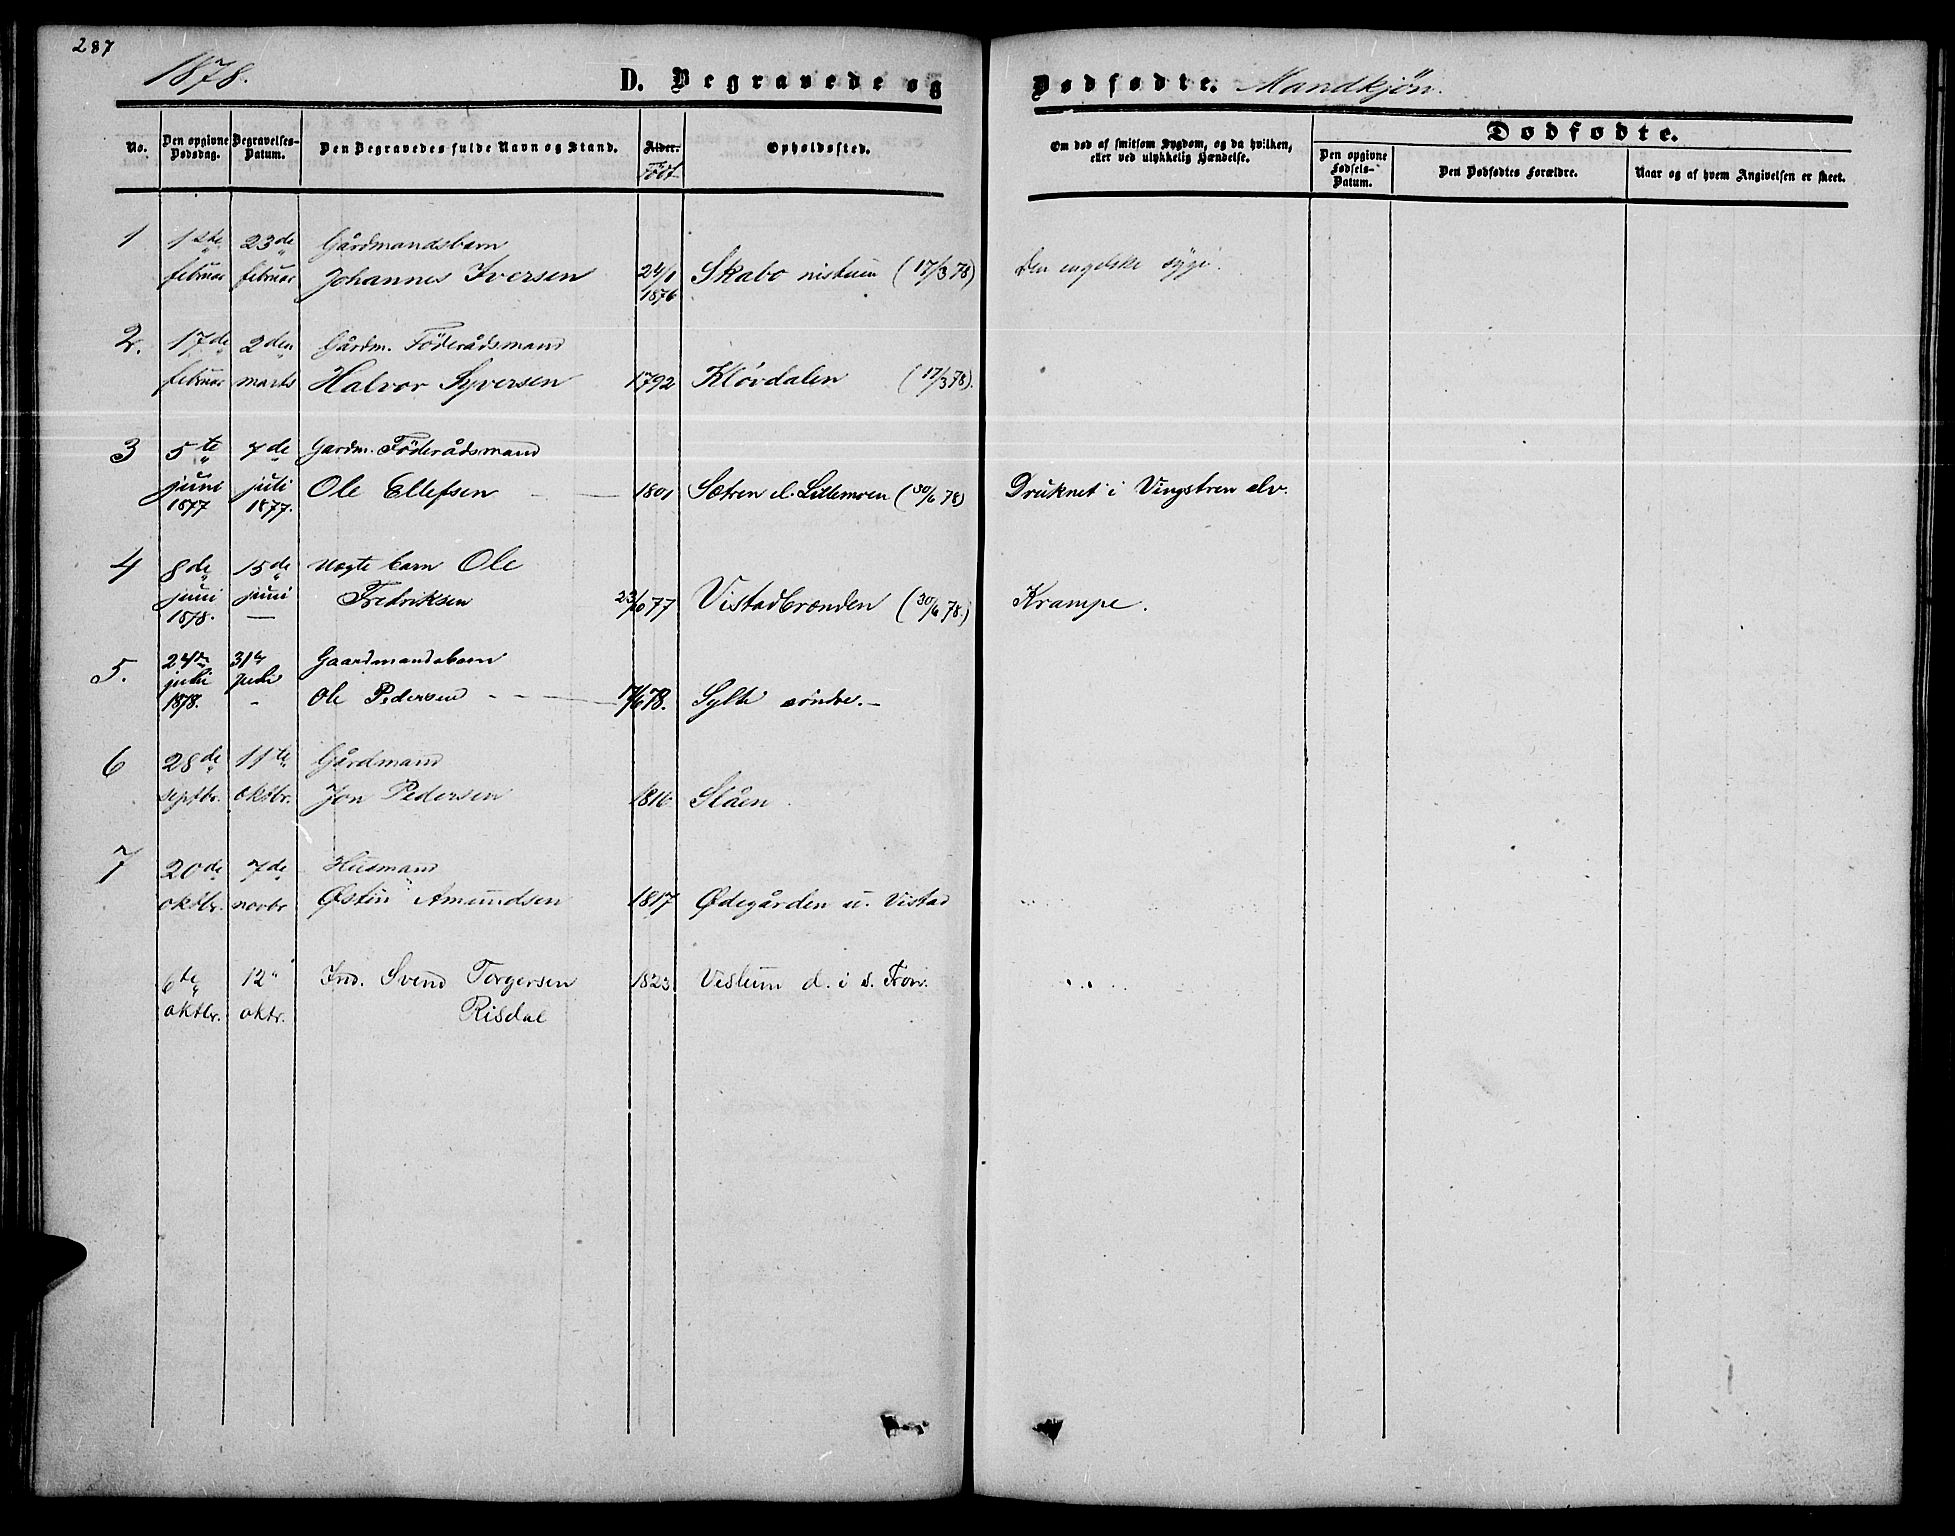 287
1878. D. Begravede og Dødfødte. Mandkjøn.
No. Den opgivne Dødsdag. Begravelses-Datum. Den Begravedes fulde Navn og Stand. Alder. Født Opholdssted. Om død af smitsom Sygdom, og da hvilken, eller ved ulykkelig Hændelse. Dødfødte.
Den opgivne Fødsels-Datum. Den Dødfødtes Forældre. Naar og af hvem Angivelsen er skeet.
1 1ste 23de Gårdmandsbarn
februar februar Johannes Iversen 24/1 1876 Skabo nistuen (17/3 78) Den engelske syge.
2. 17de 2den Gårdm. Föderådsmand
februar marts Halvor Syversen 1792 Kløvdalen (17/3 78).
3 5te 7de Gardm. Föderådsmand
juni juli Ole Ellefsen 1801 Sætren d. Lillemoen (30/6 78) Druknet i Vingstren elv.
1877 1877.
4 8de 15de uægte barn Ole
juni juni Fredriksen 23/10 77 Vistadbrænden (30/6 78.) Krampe.
1878. —
5. 24de 31te Gaardmandsbarn
juli juli
1878. - Ole Pedersen 17/6 78. Sylte söndre. -
6 28de 11te Gårdmand
septbr. oktbr. Jon Pedersen 1816 Slåen
7 20de 7de Husmand
oktbr. novbr Østen Amundsen 1817 Ødegården u. Vistad
6te 12" Ind. Svend Torgersen 1823 Vislum d. i s. Fron.
oktbr. oktr. Risdal